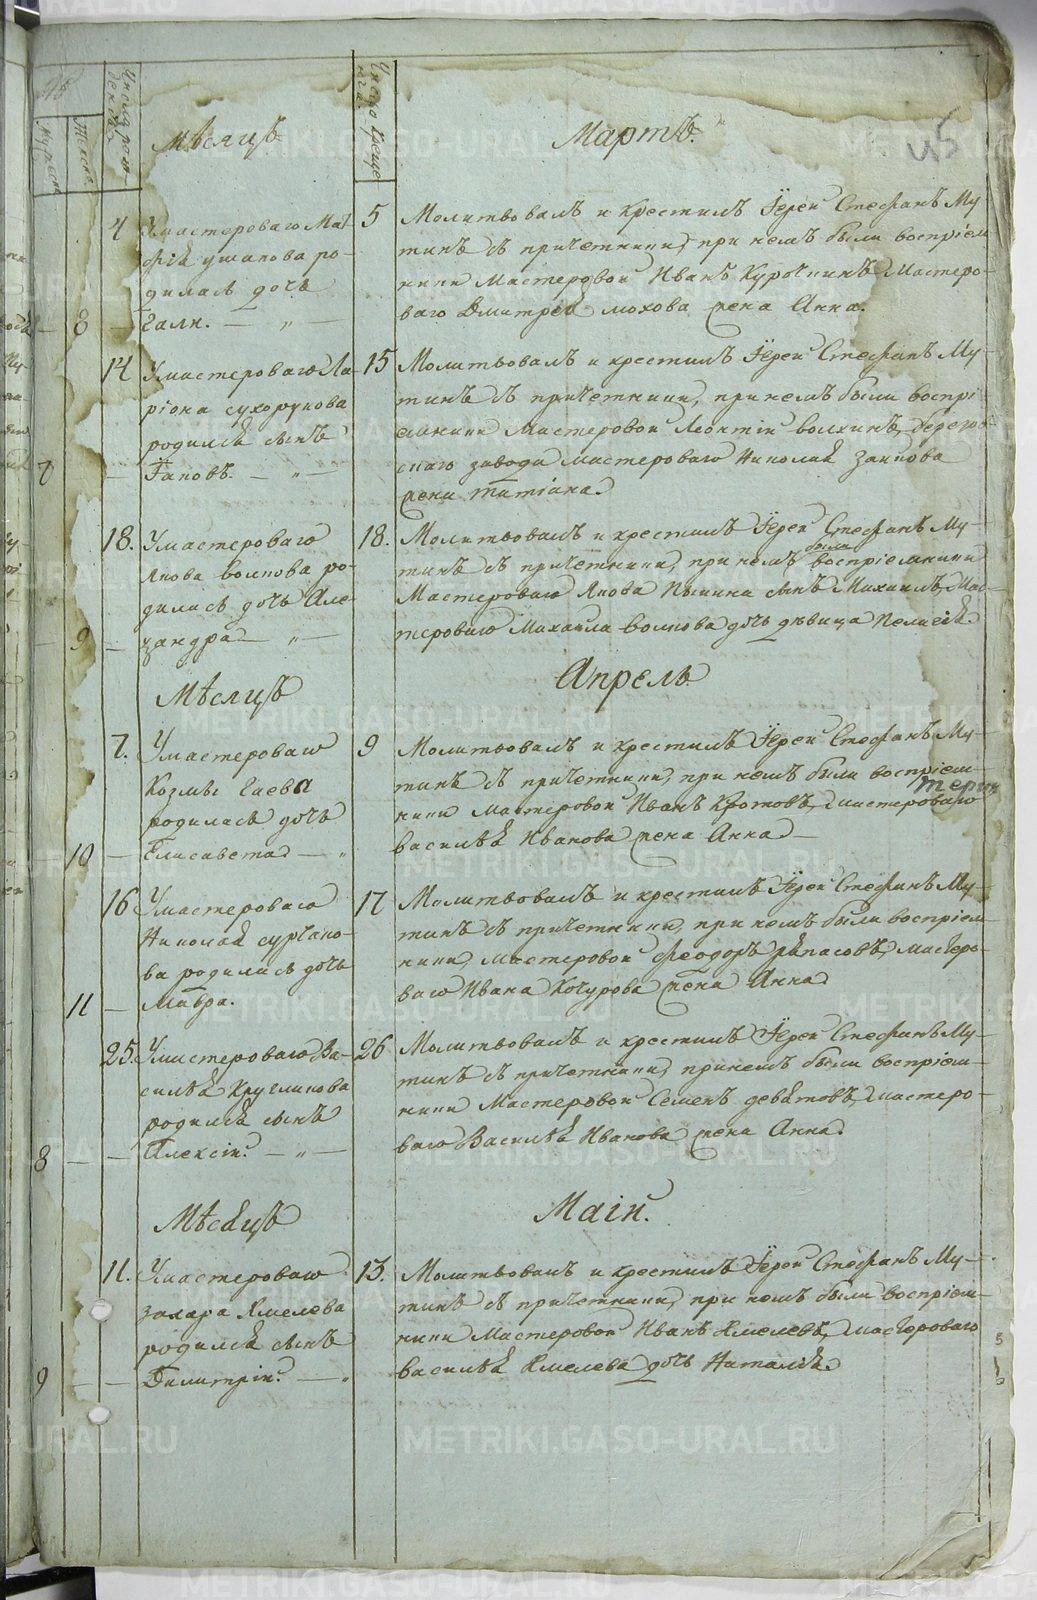 45
Мужеска
Женска
Число рождения
Число крещения
Мѣсяцъ
Мартъ.
4
У мастероваго Мат
фѣя ушакова ро-
дилась дочь
8
Гали.
5
Молитвовалъ и крестилъ Їерей Стефанъ Му
тинъ съ причетники, при немъ были восприем
ники Мастеровой Иванъ Курочкинъ Мастеро-
ваго Дмитрея мохова жена Анна.
14
У мастероваго Ла
ріона сухорукова
родился сынъ
7
Іаковъ.
15
Молитвовалъ и крестилъ Їерей Стефанъ Му-
тинъ съ причетники, при немъ были воспрі
емники Мастеровой Леонтіи волхинъ, березо-
скаго завода мастероваго Николая
жена татіана.
18.
У мастероваго
Якова волкова ро-
дилась дочь Але
9
ѯандра
18.
Молитвовалъ и крестилъ Їерей Стефанъ Му-
были
тинъ съ причетники, при немъ восприемники
Мастероваго Якова сынъ Михаилъ, Мас-
тероваго Михаила волкова дочь дѣвица Пелагея.
Мѣсяцъ
Апрель
7.
У мастероваго
Козмы Гаева
родилась дочь
10
Елисавета
9
Молитвовалъ и крестилъ Їерей Стефанъ Му-
тинъ съ причетники, при немъ были восприем-
ники мастеровой Иванъ Кротовъ, мастероваго
василья Иванова жена Анна
16
У мастероваго
Николая сурчако-
ва родилась дочь
11
Мавра.
17
Молитвовалъ и крестилъ Їерей Стефанъ Му-
тинъ съ причетники, при немъ были восприем-
ники, мастеровой Феодоръ рѣпасовъ, мастеро-
ваго Ивана Кочурова жена Анна
25.
У мастероваго Ва-
силья Кругликова
родился сынъ
8
Алексіи.
26
Молитвовалъ и крестилъ Їерей Стефанъ Му-
тинъ съ причетники, при немъ были восприем-
ники Мастеровой Семенъ девятовъ, мастеро-
ваго Василья Иванова жена Анна.
Мѣсяцъ
Маіи.
11.
У мастероваго
захара Ямелева
родился сынъ
9
Димитріи.
13.
Молитвовалъ и крестилъ Їерей Стефанъ Му-
тинъ съ причетники, при немъ были восприем-
ники Мастеровой Иванъ Ямелевъ, мастероваго
василья Ямелева дочь Наталья.
METRIKI.GASO-URAL.RU